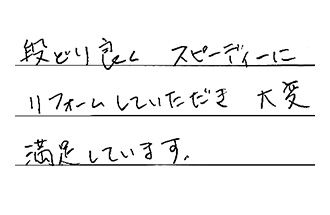 段どり良く スピーディーに
リフォームしていただき 大変
満足しています.